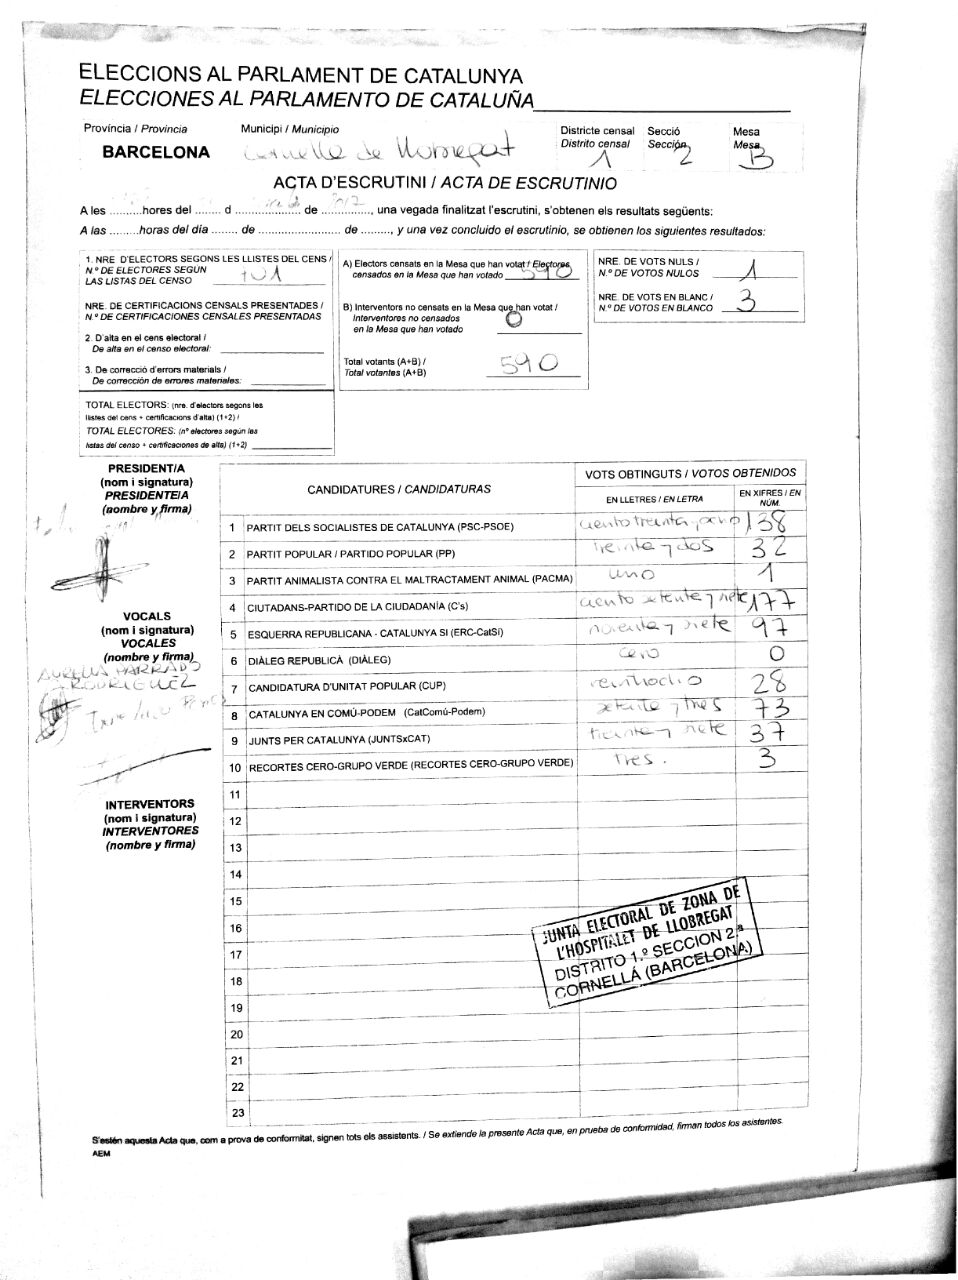 ELECCIONS AL PARLAMENT DE CATALUNYA
ELECCIONES AL PARLAMENTO DE CATALUÑA
Província / Provincia Municipi / Municipio Districte censal Secció Mesa
Distrito censal Sección Mesa
BARCELONA Cornella de Llobregat 1 2 B
ACTA D'ESCRUTINI / ACTA DE ESCRUTINIO
A les ..........hores del ........ d .................... de 2017, una vegada finalitzat l'escrutini, s'obtenen els resultats següents:
A las .........horas del día ........ de ......................... de ........., y una vez concluido el escrutinio, se obtienen los siguientes resultados:
1. NRE D'ELECTORS SEGONS LES LLISTES DEL CENS /
N.º DE ELECTORES SEGÚN
LAS LISTAS DEL CENSO 701
NRE. DE CERTIFICACIONS CENSALS PRESENTADES /
N.º DE CERTIFICACIONES CENSALES PRESENTADAS
2. D'alta en el cens electoral /
De alta en el censo electoral:
3. De correcció d'errors materials /
De corrección de errores materiales:
TOTAL ELECTORS: (nre. d'electors segons les
llistes del cens + certificacions d'alta) (1+2) /
TOTAL ELECTORES: (nº electores según las
listas del censo + certificaciones de alta) (1+2)
A) Electors censats en la Mesa que han votat / Electores
censados en la Mesa que han votado 590
B) Interventors no censats en la Mesa que han votat /
Interventores no censados
en la Mesa que han votado 0
Total votants (A+B) /
Total votantes (A+B) 590
NRE. DE VOTS NULS /
N.º DE VOTOS NULOS 1
NRE. DE VOTS EN BLANC /
N.º DE VOTOS EN BLANCO 3
PRESIDENT/A
(nom i signatura)
PRESIDENTE/A
(nombre y firma)
VOCALS
(nom i signatura)
VOCALES
(nombre y firma)
AURELIA PARRADO
RODRIGUEZ
INTERVENTORS
(nom i signatura)
INTERVENTORES
(nombre y firma)
CANDIDATURES / CANDIDATURAS VOTS OBTINGUTS / VOTOS OBTENIDOS
EN LLETRES / EN LETRA EN XIFRES / EN NÚM.
1 PARTIT DELS SOCIALISTES DE CATALUNYA (PSC-PSOE) ciento treinta y ocho 138
2 PARTIT POPULAR / PARTIDO POPULAR (PP) treinta y dos 32
3 PARTIT ANIMALISTA CONTRA EL MALTRACTAMENT ANIMAL (PACMA) uno 1
4 CIUTADANS-PARTIDO DE LA CIUDADANÍA (C's) ciento setenta y siete 177
5 ESQUERRA REPUBLICANA - CATALUNYA SÍ (ERC-CatSí) noventa y siete 97
6 DIÀLEG REPUBLICÀ (DIÀLEG) cero 0
7 CANDIDATURA D'UNITAT POPULAR (CUP) veintiocho 28
8 CATALUNYA EN COMÚ-PODEM (CatComú-Podem) setenta y tres 73
9 JUNTS PER CATALUNYA (JUNTSxCAT) treinta y siete 37
10 RECORTES CERO-GRUPO VERDE (RECORTES CERO-GRUPO VERDE) tres. 3
11
12
13
14
15
16
17
18
19
20
21
22
23
JUNTA ELECTORAL DE ZONA DE
L'HOSPITALET DE LLOBREGAT
DISTRITO 1.º SECCION 2.ª
CORNELLÁ (BARCELONA)
S'estén aquesta Acta que, com a prova de conformitat, signen tots els assistents. / Se extiende la presente Acta que, en prueba de conformidad, firman todos los asistentes.
AEM